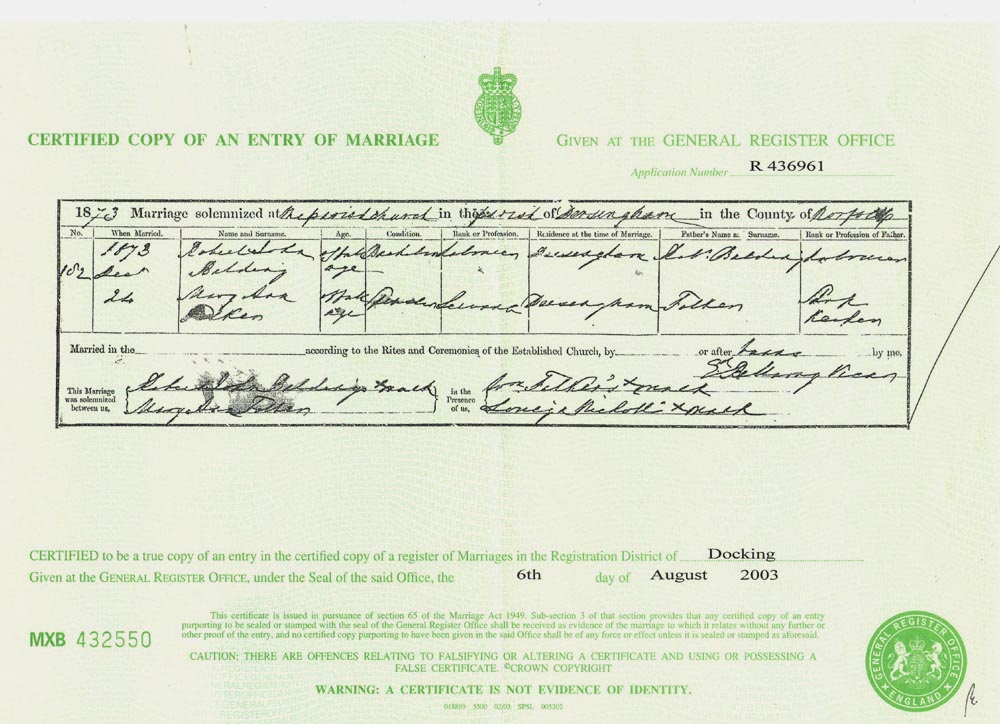 CERTIFIED COPY OF AN ENTRY OF MARRIAGE
GIVEN AT THE GENERAL REGISTER OFFICE
Application Number R 436961
1873 Marriage solemnized at the parish church in the parish of Dersingham in the County of Norfolk
No. When Married. Name and Surname. Age. Condition. Rank or Profession. Residence at the time of Marriage. Father's Name & Surname. Rank or Profession of Father.
1873 Robert John of full Bachelor Labourer Dersingham Belding Labourer
182 Belding age
24 Mary Ann of full Dersingham Felken
age
Married in the according to the Rites and Ceremonies of the Established Church, by or after banns by me,
Vicar
This Marriage was solemnized between us,
Robert John Belding x mark
Mary Ann Felken
in the Presence of us,
x mark
x mark
CERTIFIED to be a true copy of an entry in the certified copy of a register of Marriages in the Registration District of Docking
Given at the GENERAL REGISTER OFFICE, under the Seal of the said Office, the 6th day of August 2003
This certificate is issued in pursuance of section 65 of the Marriage Act 1949. Sub-section 3 of that section provides that any certified copy of an entry
purporting to be sealed or stamped with the seal of the General Register Office shall be received as evidence of the marriage to which it relates without any further or
other proof of the entry, and no certified copy purporting to have been given in the said Office shall be of any force or effect unless it is sealed or stamped as aforesaid.
MXB 432550
CAUTION: THERE ARE OFFENCES RELATING TO FALSIFYING OR ALTERING A CERTIFICATE AND USING OR POSSESSING A
FALSE CERTIFICATE. ©CROWN COPYRIGHT
WARNING: A CERTIFICATE IS NOT EVIDENCE OF IDENTITY.
018889 5500 02/03 SPSL 005202
GENERAL REGISTER OFFICE
ENGLAND